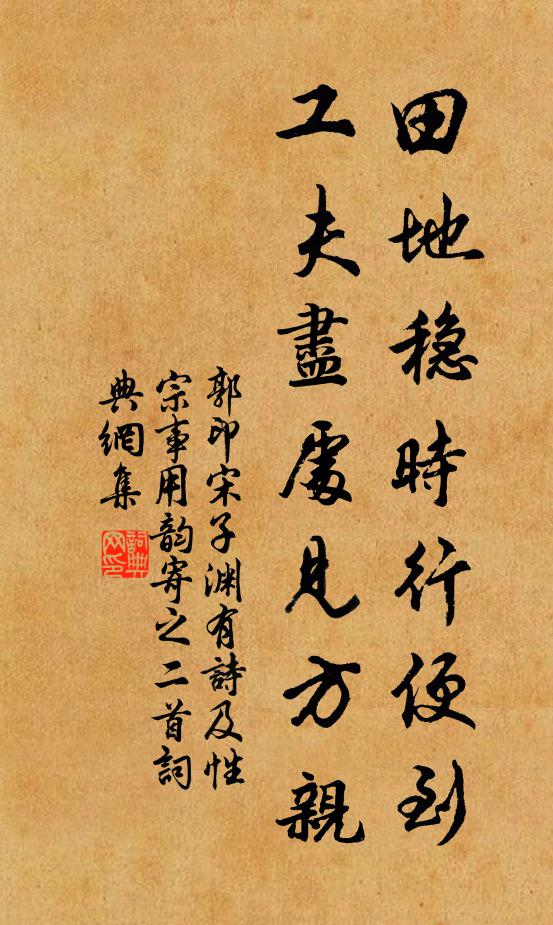 田地穩時行便到
工夫盡處見方親
郭印宋子淵有詩及性
宗事用韵寄之二首詞
典網集
詞典网印